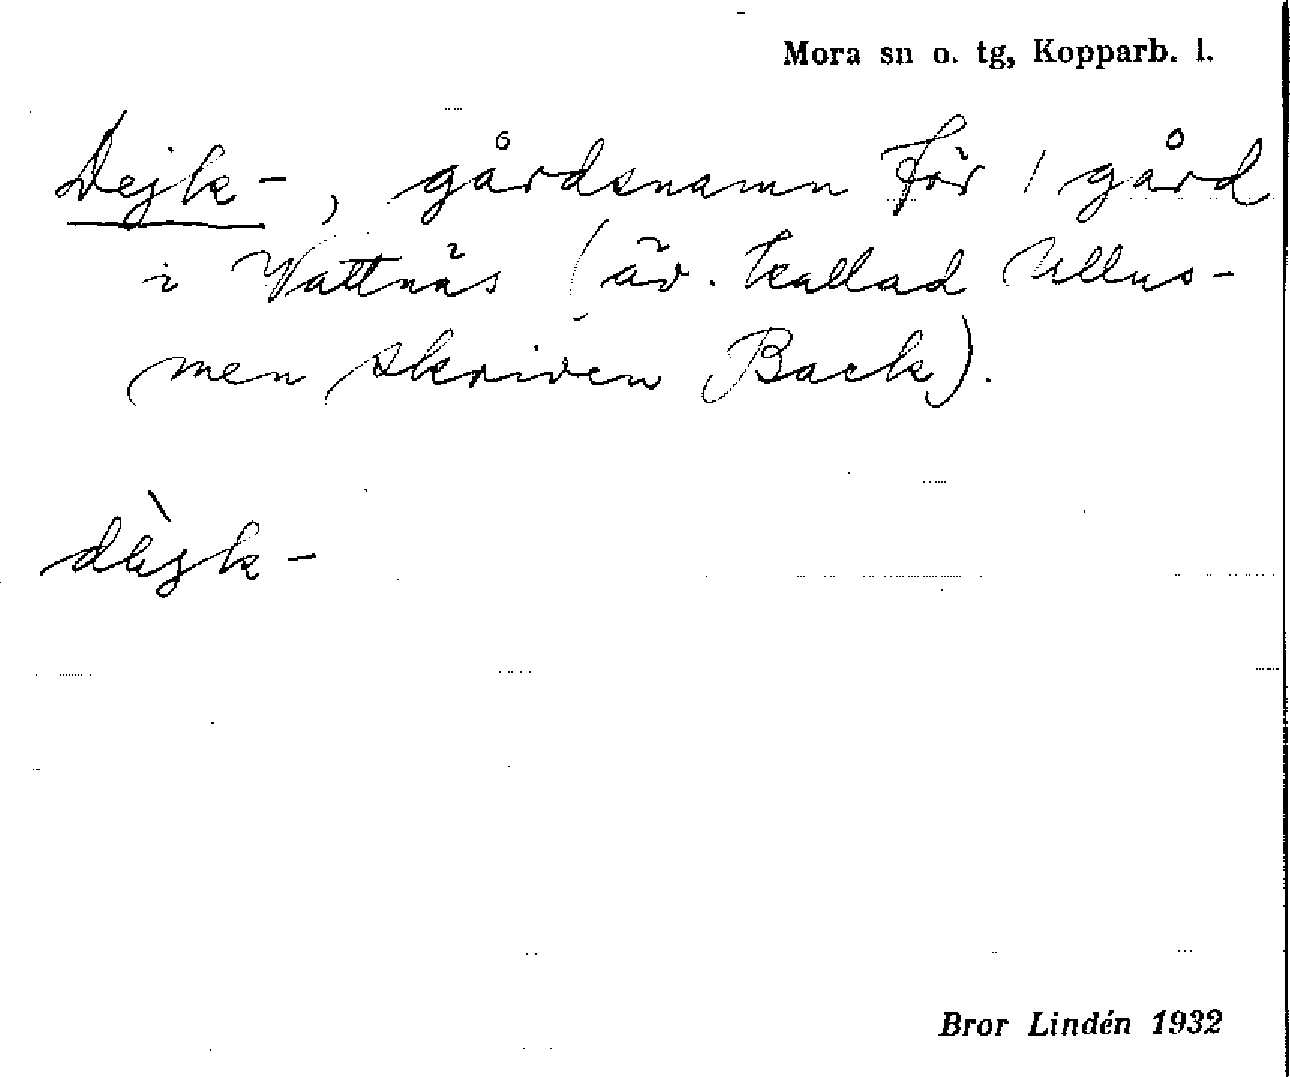 Mora sn o. tg, Kopparb. l.
Dejk-, gårdsnamn för 1 gård
i Vattnäs (äv. kallad Ullus-
men skriven Back).
dèjk-
Bror Lindén 1932